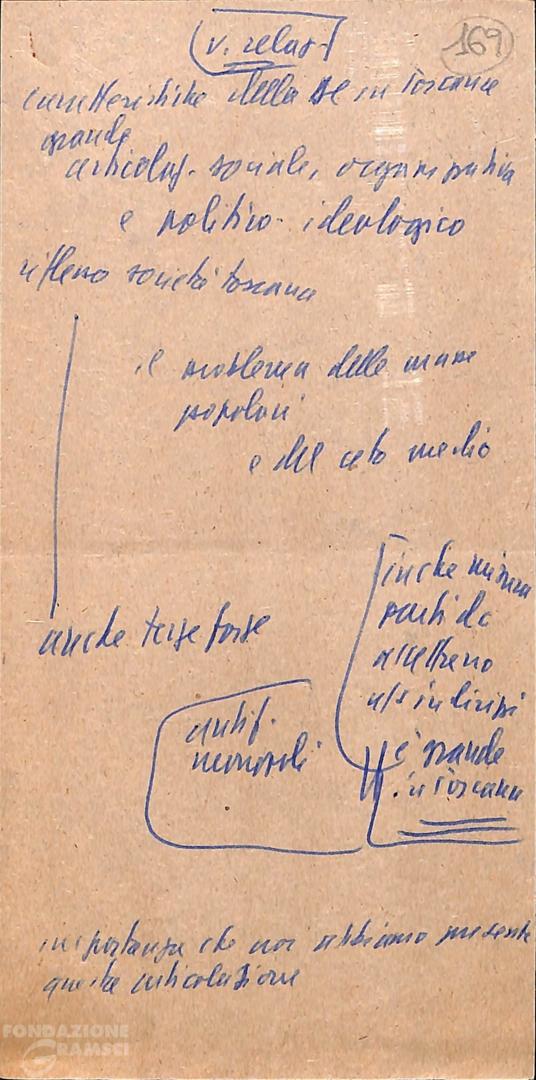 (v. relaz.)
169
caratteristiche della DC in Toscana
grande
articolaz. sociale, organizzativa
e politico-ideologico
riflesso società toscana
il problema delle masse
popolari
e del ceto medio
anche terze forze
in che misura
partito
è grande
in Toscana
antif.
monopoli
importanza che noi abbiamo presente
questa articolazione
FONDAZIONE
GRAMSCI